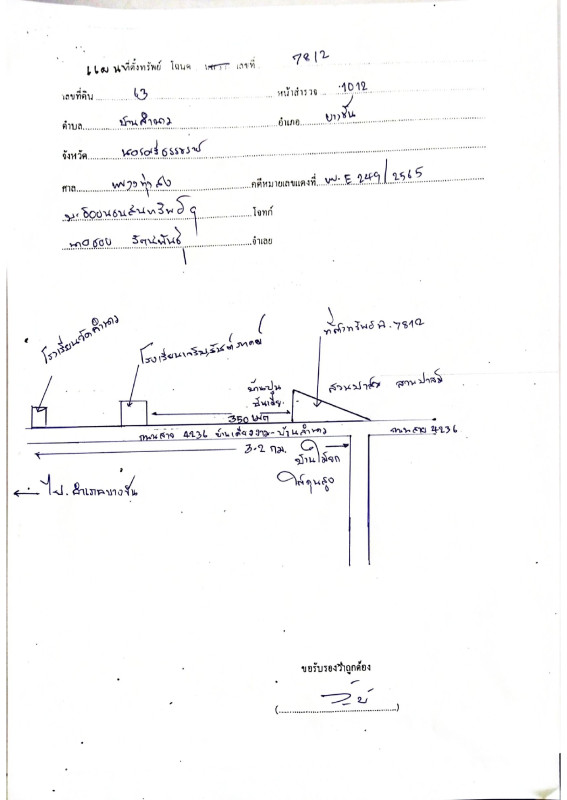 แผนที่ตั้งทรัพย์ โฉนด เลขที่ 7812
เลขที่ดิน 63 หน้าสำรวจ 1012
ตำบล บ้านลำนาว อำเภอ บางขัน
จังหวัด นครศรีธรรมราช
ศาล แพ่งทุ่งสง คดีหมายเลขแดงที่ ผบ.E 249/2565
โจทก์
จำเลย
โรงเรียนวัดลำนาว
โรงเรียน
ที่ตั้งทรัพย์ ฉ.7812
บ้านปูน
ชั้นเดียว
สวนปาล์ม สวนปาล์ม
350 เมตร
ถนนสาย 4236 - บ้านลำนาว
ถนนสาย 4236
3.2 กม.
บ้านไม้ยก
ใต้ถุนสูง
ไป อำเภอบางขัน
ขอรับรองว่าถูกต้อง